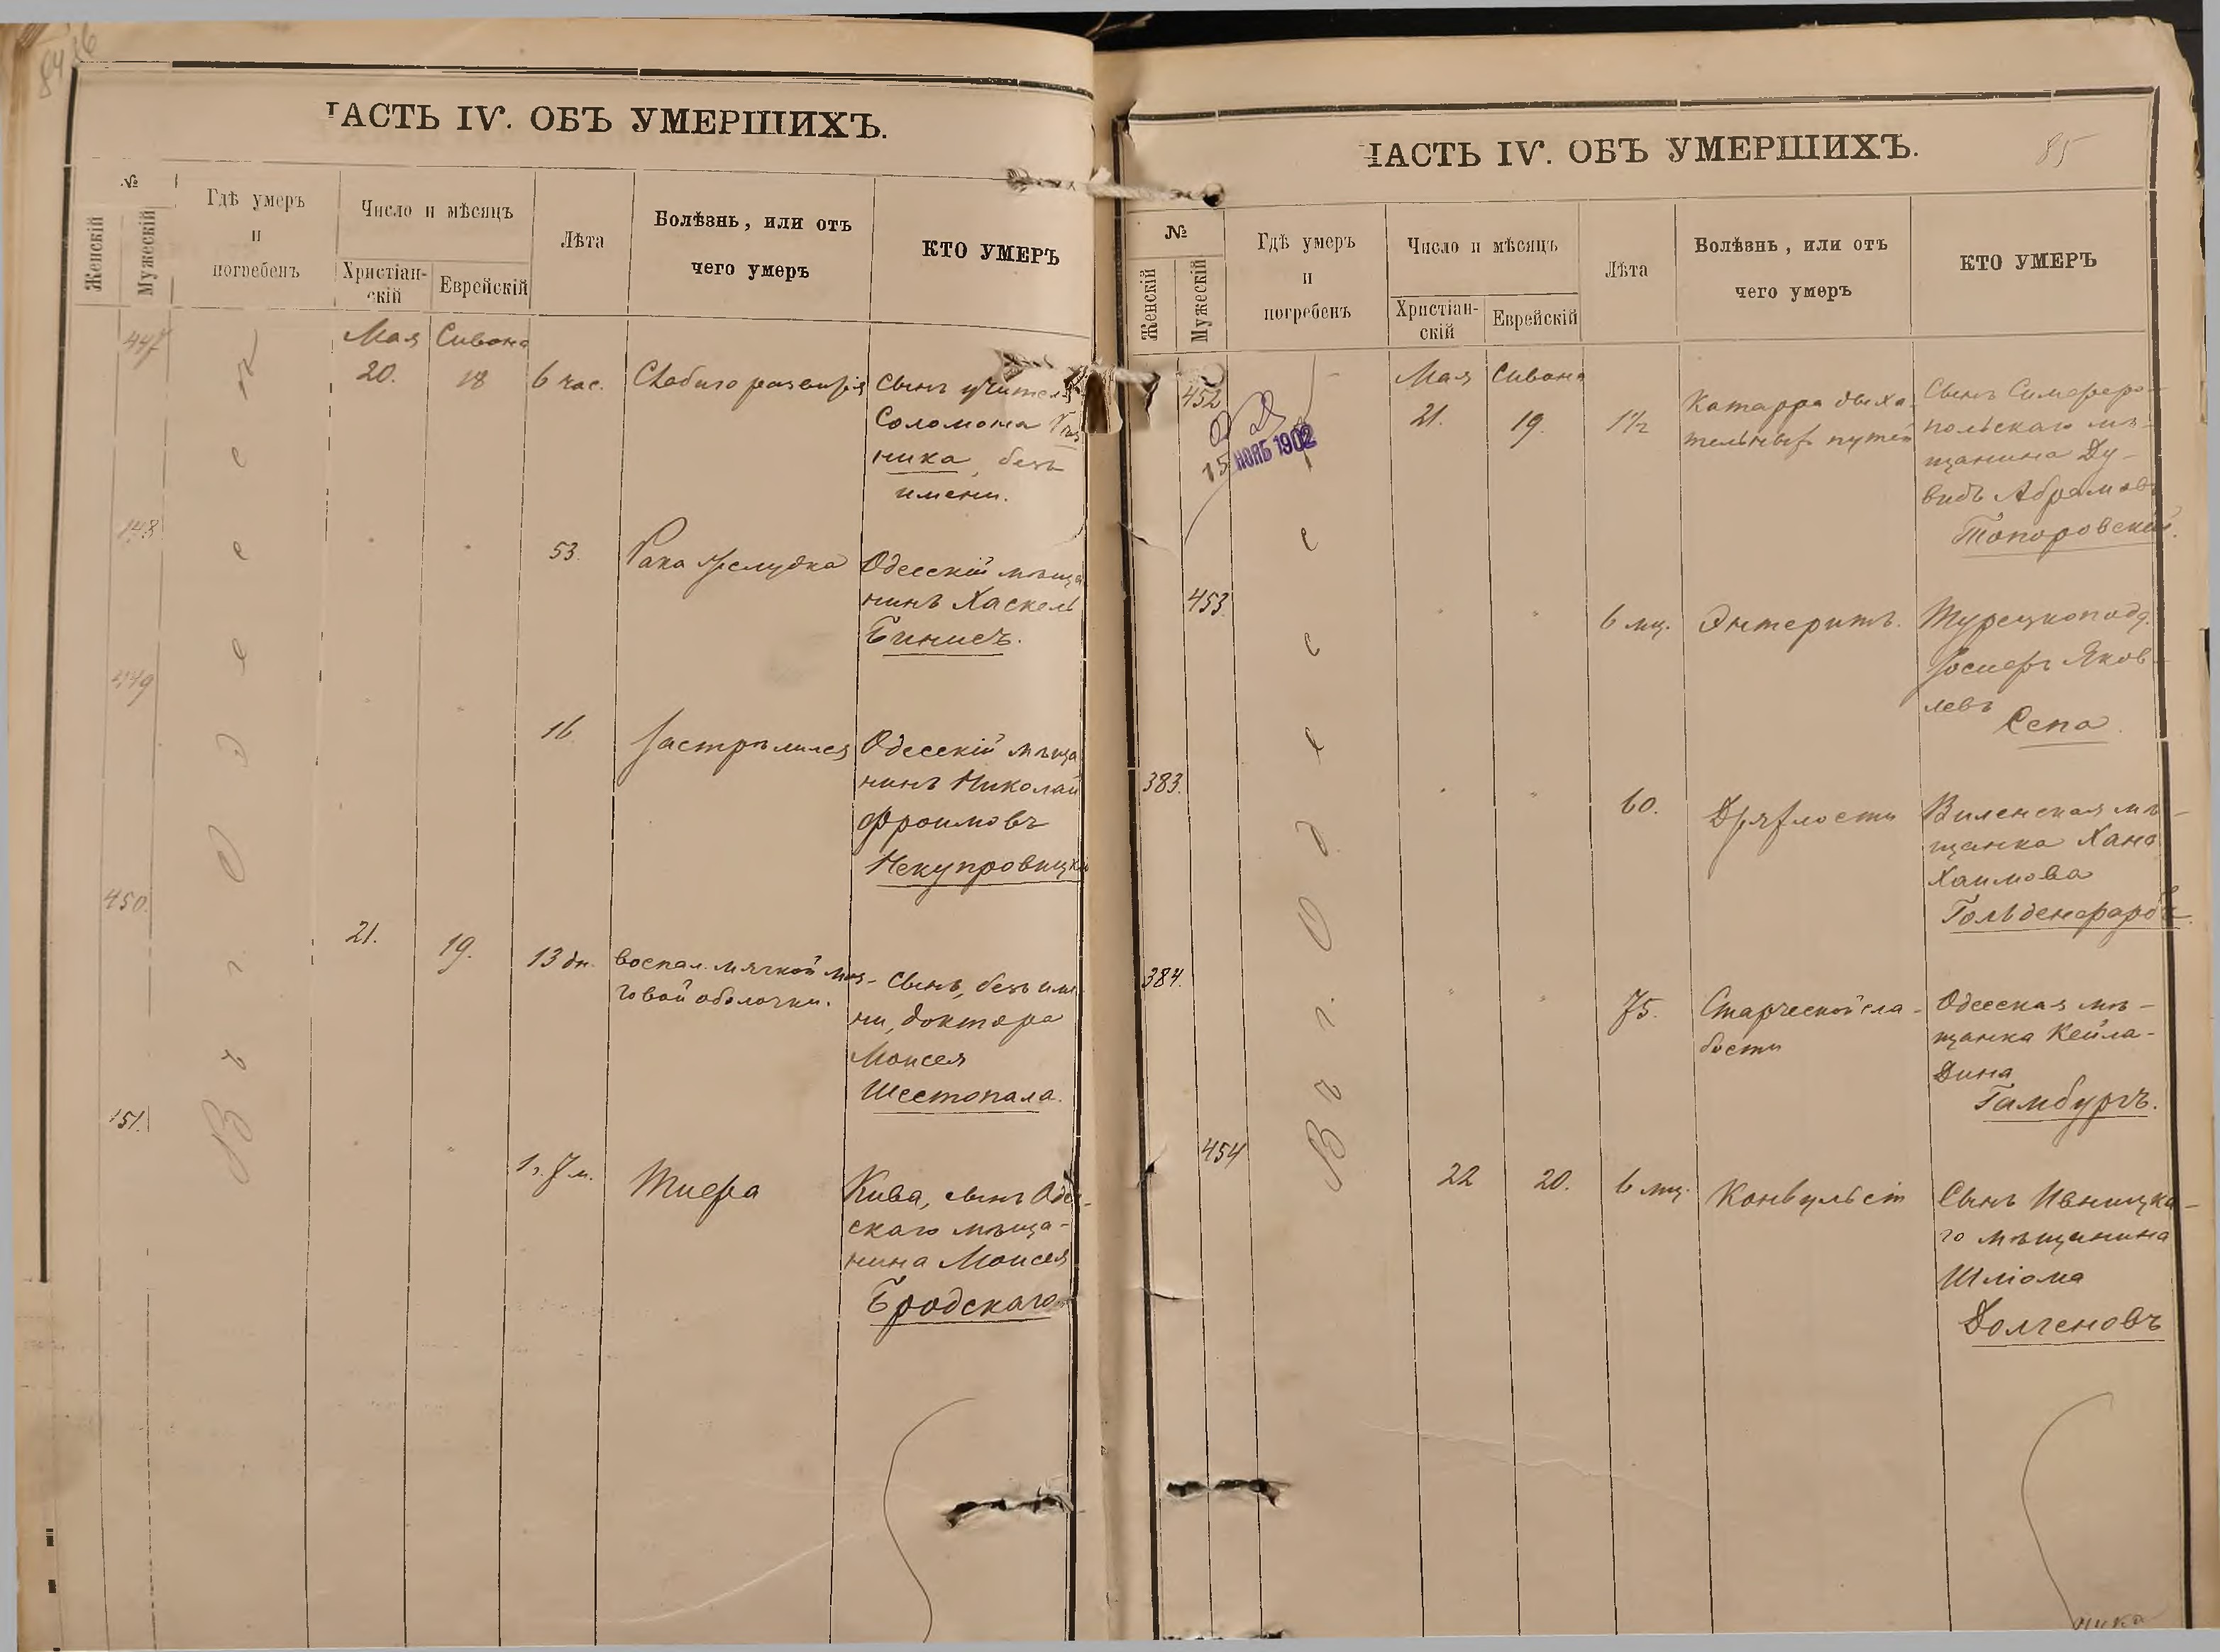 84
ЧАСТЬ IV. ОБЪ УМЕРШИХЪ.
№
Женскій
Мужескій
Гдѣ умеръ
и
погребенъ
Число и мѣсяцъ
Христіан-
скій
Еврейскій
Лѣта
Болѣзнь, или отъ
чего умеръ
КТО УМЕРЪ
Въ г. Одессѣ
447
Мая Сивона
20. 18 6 час. Слабаго развитія Сынъ учителя
Соломона
ника, безъ
имени.
448
53. Рака желудка Одесскій мѣща
нинъ Хаскель
Бинисъ.
449
16 Застрѣлился Одесскій мѣща
нинъ Николай
Фроимовъ
Некупровицкій
450.
21. 19. 13 дн. Воспал. мягкой моз-
говой оболочки.
Сынъ, безъ име
ни, доктора
Моисея
Шестопала.
451.
1 г. 7 м. Тифа Кива, сынъ Одес-
скаго мѣща-
нина Моисея
Бродскаго
ЧАСТЬ IV. ОБЪ УМЕРШИХЪ.
85
№
Женскій
Мужескій
Гдѣ умеръ
и
погребенъ
Число и мѣсяцъ
Христіан-
скій
Еврейскій
Лѣта
Болѣзнь, или отъ
чего умеръ
КТО УМЕРЪ
Въ г. Одессѣ
452
15 НОЯБ 1902
Мая Сивона
21. 19. 1½ Катарра дыха-
тельныхъ путей
Сынъ Симферо-
польскаго мѣ-
щанина Ду-
видъ Абрамовъ
Топоровскій.
453.
6 мц. Энтеритъ. Турецкопод.
Іосифъ Яков-
левъ
Сепа.
383.
60. Дряхлости Виленская мѣ-
щанка Хана
Хаимова
Гольденфарбъ.
384.
75. Старческой сла-
бости
Одесская мѣ-
щанка Кейла-
Дина
Гамбургъ.
454
22 20. 6 мц. Конвульсій Сынъ Ивницка-
го мѣщанина
Шліома
Долгеновъ